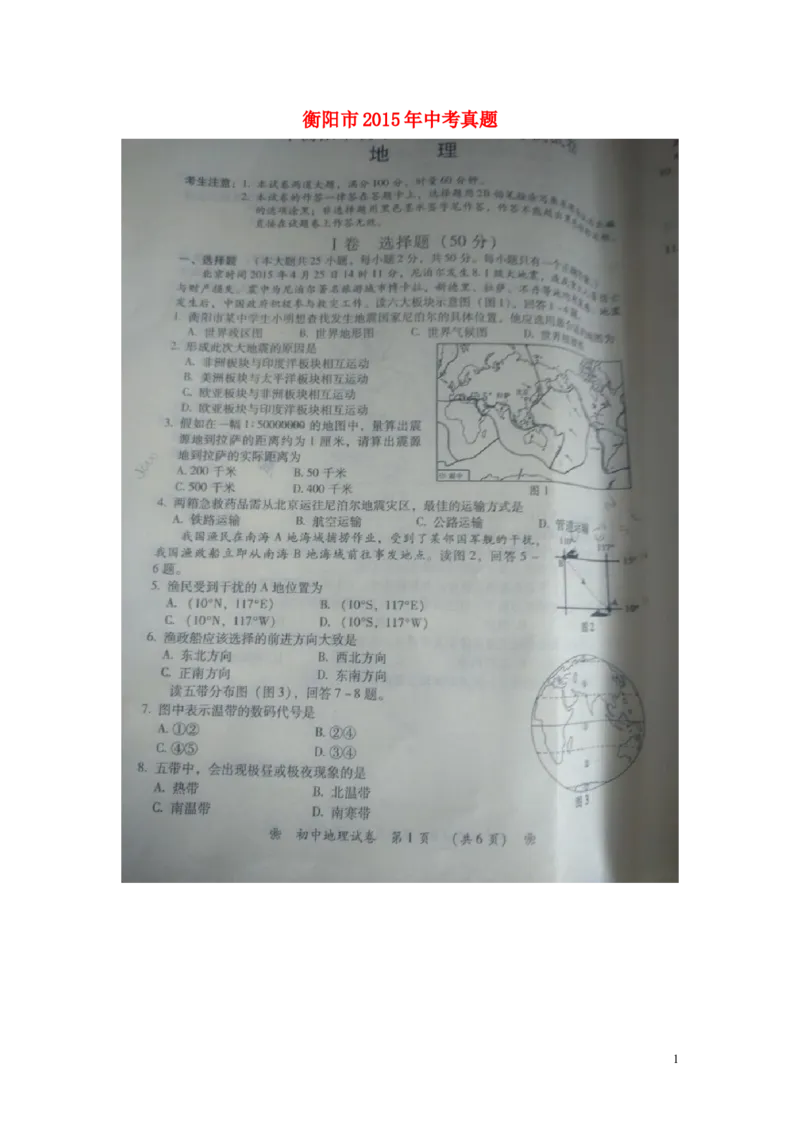 衡阳市2015年中考真题
地 理
考生注意：1. 本试卷两道大题，满分100分，时量60分钟。
2. 本试卷的作答一律答在答题卡上，选择题用2B铅笔
的选项涂黑；非选择题用黑色墨水签字笔作答，作答不能超出
直接在试题卷上作答无效。
I卷 选择题（50分）
一、选择题 （本大题共25小题，每小题2分，共50分。每小题只有一个
北京时间2015年4月25日14时11分，尼泊尔发生8.1级大地震，
与财产损失。震中为尼泊尔著名旅游城市博卡拉，新德里、拉萨、不丹等地
发生后，中国政府积极参与救灾工作。读六大板块示意图（图1），回答1-4题。
1. 衡阳市某中学生小明想查找发生地震国家尼泊尔的具体位置，他应选用最合适的地图为
A. 世界政区图 B. 世界地形图 C. 世界气候图 D. 世界
2. 形成此次大地震的原因是
A. 非洲板块与印度洋板块相互运动
B. 美洲板块与太平洋板块相互运动
C. 欧亚板块与非洲板块相互运动
D. 欧亚板块与印度洋板块相互运动
3. 假如在一幅1:50000000的地图中，量算出震
源地到拉萨的距离约为1厘米，请算出震源
地到拉萨的实际距离为
A. 200千米 B. 50千米
C. 500千米 D. 400千米
图1
4. 两箱急救药品需从北京运往尼泊尔地震灾区，最佳的运输方式是
A. 铁路运输 B. 航空运输 C. 公路运输 D. 管道运输
我国渔民在南海A地海域捕捞作业，受到了某邻国军舰的干扰，
我国渔政船立即从南海B地海域前往事发地点。读图2，回答5-
6题。
5. 渔民受到干扰的A地位置为
A.（10°N，117°E） B.（10°S，117°E）
C.（10°N，117°W） D.（10°S，117°W）
110° 117°
B 15°
A 10°
图2
6. 渔政船应该选择的前进方向大致是
A. 东北方向 B. 西北方向
C. 正南方向 D. 东南方向
读五带分布图（图3），回答7-8题。
7. 图中表示温带的数码代号是
A. ①② B. ②④
C. ④⑤ D. ③④
8. 五带中，会出现极昼或极夜现象的是
A. 热带 B. 北温带
C. 南温带 D. 南寒带
图3
初中地理试卷 第1页 （共6页）
1